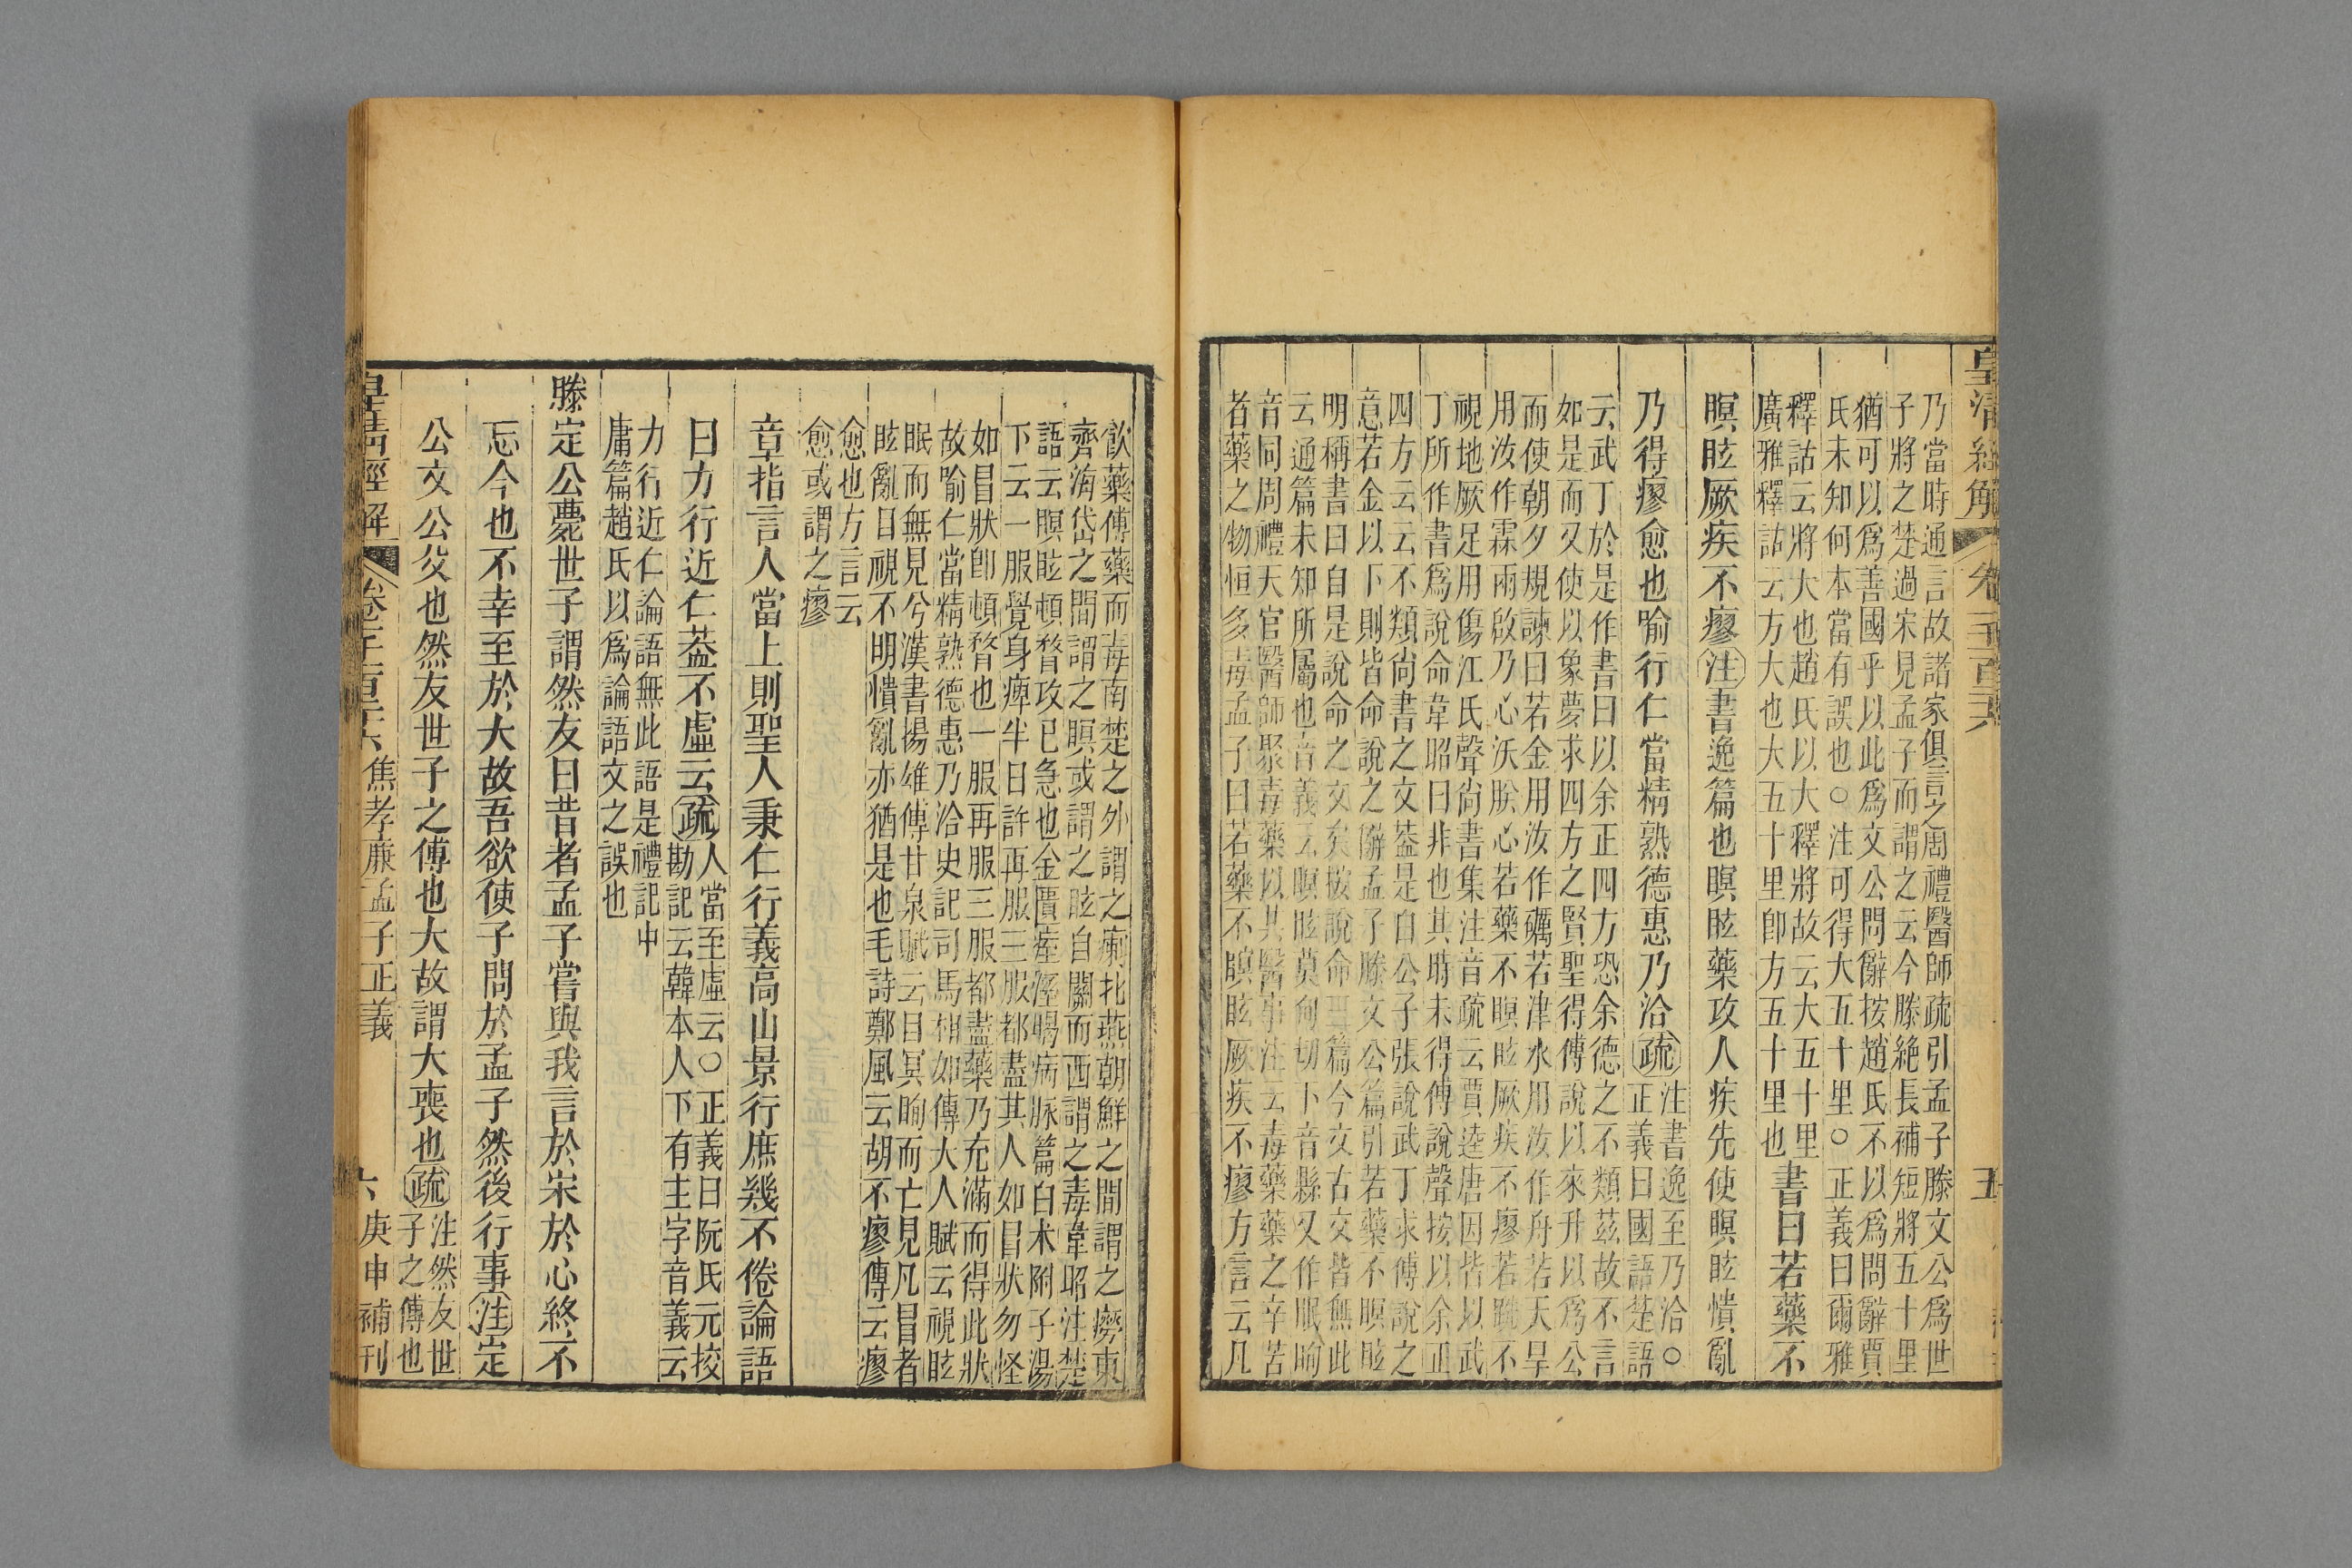 皇清經解
五
乃當時通言故諸家俱言之周禮醫師疏引孟子滕文公爲世
子將之楚過宋見孟子而謂之云今滕絕長補短將五十里
猶可以爲善國乎以此爲文公問辭按趙氏不以爲問辭賈
氏未知何本當有誤也○注可得大五十里○正義曰爾雅
釋詁云將大也趙氏以大釋將故云大五十里
廣雅釋詁云方大也大五十里卽方五十里也
書曰若藥不
瞑眩厥疾不瘳注書逸篇也瞑眩藥攻人疾先使瞑眩憒亂
乃得瘳愈也喻行仁當精熟德惠乃洽疏
注書逸至乃洽○
正義曰國語楚語
云武丁於是作書曰以余正四方恐余德之不類茲故不言
如是而又使以象夢求四方之賢聖得傅說以來升以爲公
而使朝夕規諫曰若金用汝作礪若津水用汝作舟若天旱
用汝作霖雨啟乃心沃朕心若藥不瞑眩厥疾不瘳若跣不
視地厥足用傷江氏聲尙書集注音疏云賈逵唐固皆以武
丁所作書爲說命韋昭曰非也其時未得傅說聲按以余正
四方云云不類尙書之文葢是白公子張說武丁求傅說之
意若金以下則皆命說之辭孟子滕文公篇引若藥不瞑眩
明稱書曰自是說命之文矣按說命三篇今文古文皆無此
云通篇未知所屬也音義云瞑眩莫甸切下音縣又作眠眴
音同周禮天官醫師聚毒藥以共醫事注云毒藥藥之辛苦
者藥之物恒多毒孟子曰若藥不瞑眩厥疾不瘳方言云凡
飮藥傅藥而毒南楚之外謂之瘌北燕朝鮮之間謂之癆東
齊海岱之間謂之瞑或謂之眩自關而西謂之毒韋昭注楚
語云瞑眩頓瞀攻已急也金匱痙濕暍病脉篇白术附子湯
下云一服覺身痺半日許再服三服都盡其人如冒狀勿怪
如冒狀卽頓瞀也一服再服三服都盡藥乃充滿而得此狀
故喻仁當精熟德惠乃洽史記司馬相如傳大人賦云視眩
眠而無見兮漢書揚雄傳甘泉賦云目冥眴而亡見凡冒者
眩亂目視不明憒亂亦猶是也毛詩鄭風云胡不瘳傳云瘳
愈也方言云
愈或謂之瘳
章指言人當上則聖人秉仁行義高山景行庶幾不倦論語
曰力行近仁葢不虛云疏
人當至虛云○正義曰阮氏元挍
勘記云韓本人下有主字音義云
力行近仁論語無此語是禮記中
庸篇趙氏以爲論語文之誤也
滕定公薨世子謂然友曰昔者孟子嘗與我言於宋於心終不
忘今也不幸至於大故吾欲使子問於孟子然後行事注定
公文公父也然友世子之傅也大故謂大喪也疏
注然友世
子之傅也
皇清經解
焦孝廉孟子正義
六
庚申補刊